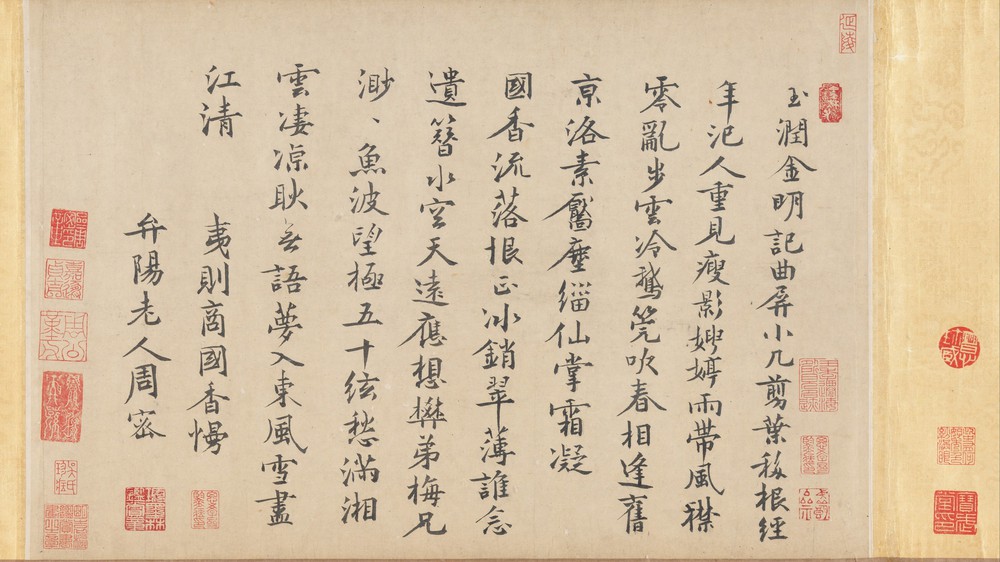 延陵
玉潤金明記曲屏小几剪葉移根經
年汜人重見瘦影娉婷雨帶風襟
零亂步雲冷鵞筦吹春相逢舊
亰洛素靨塵緇仙掌霜凝
國香流落恨正冰銷翠薄誰念
遺簪水空天遠應想礬弟梅兄
渺〻魚波望極五十絃愁滿湘
雲凄凉耿無語夢入東風雪盡
江清
夷則商國香慢
弁陽老人周密